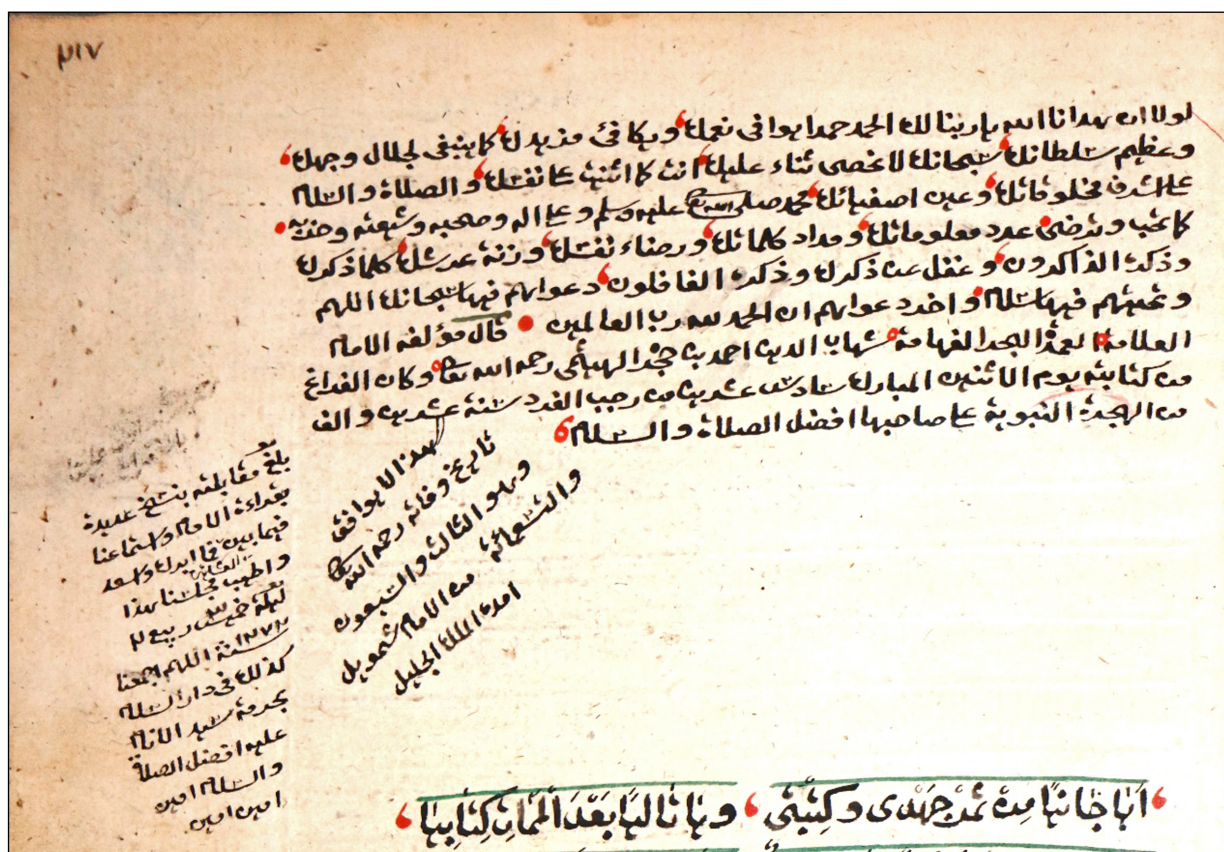 ٣١٧
لولا ان هدانا الله يا ربنا لك الحمد حمدا يوافى نعمك ويكافئ مزيدك كما ينبغى لجلال وجهك
وعظيم سلطانك سبحانك لا نحصى ثناء عليك انت كما اثنيت على نفسك والصلاة والسلام
على اشرف مخلوقاتك وعين اصفيائك محمد صلى الله عليه وسلم وعلى اله وصحبه وشيعته وحزبه
كما تحب وترضى عدد معلوماتك ومداد كلماتك ورضاء نفسك وزنة عرشك كلما ذكرك
وذكره الذاكرون وغفل عن ذكرك وذكره الغافلون دعواهم فيها سبحانك اللهم
وتحيتهم فيها سلام واخر دعواهم ان الحمد لله رب العالمين قال مؤلفه الامام
العلامة العمدة البحر الفهامة شهاب الدين احمد بن حجر الهيتمى رحمه الله تعالى وكان الفراغ
من كتابته يوم الاثنين المبارك سادس عشرين من رجب الفرد سنة عشرين والف
من الهجرة النبوية على صاحبها افضل الصلاة والسلام
هذا لا يوافق
تاريخ وفاته رحمه الله
وهو الثالث والسبعون
والتسعمائة
من الامام شمويل
امده الملك الجليل
بلغ مقابلته بنسخ عديدة
بقراءة الامام واستماعنا
فيما بين
واطيب مجلسنا هذا
ليلة خميس ربيع ٢
سنة ١٢٧٢ اللهم اجمعنا
كذلك فى دار السلام
بحرمة سيد الانام
عليه افضل الصلاة
والسلام امين
امين امين
ايا خائنا من بعد جهدى وكتبتى ويا تاليا بعد الممات كتابيا